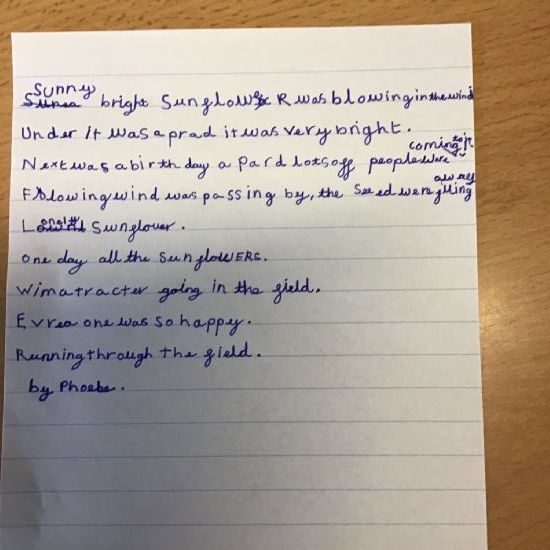 Sunny bright Sunglower R was blowing in the wind
Under it was a prad it was very bright.
Next was a birthday a Pard lots off people were coming to it
Fblowing wind was passing by, the Seed were gliing away
Sunglower.
one day all the SunglowERS.
Wim a tracter going in the gield.
Evrea one was so happy.
Running through the gield.
by Phoebe.